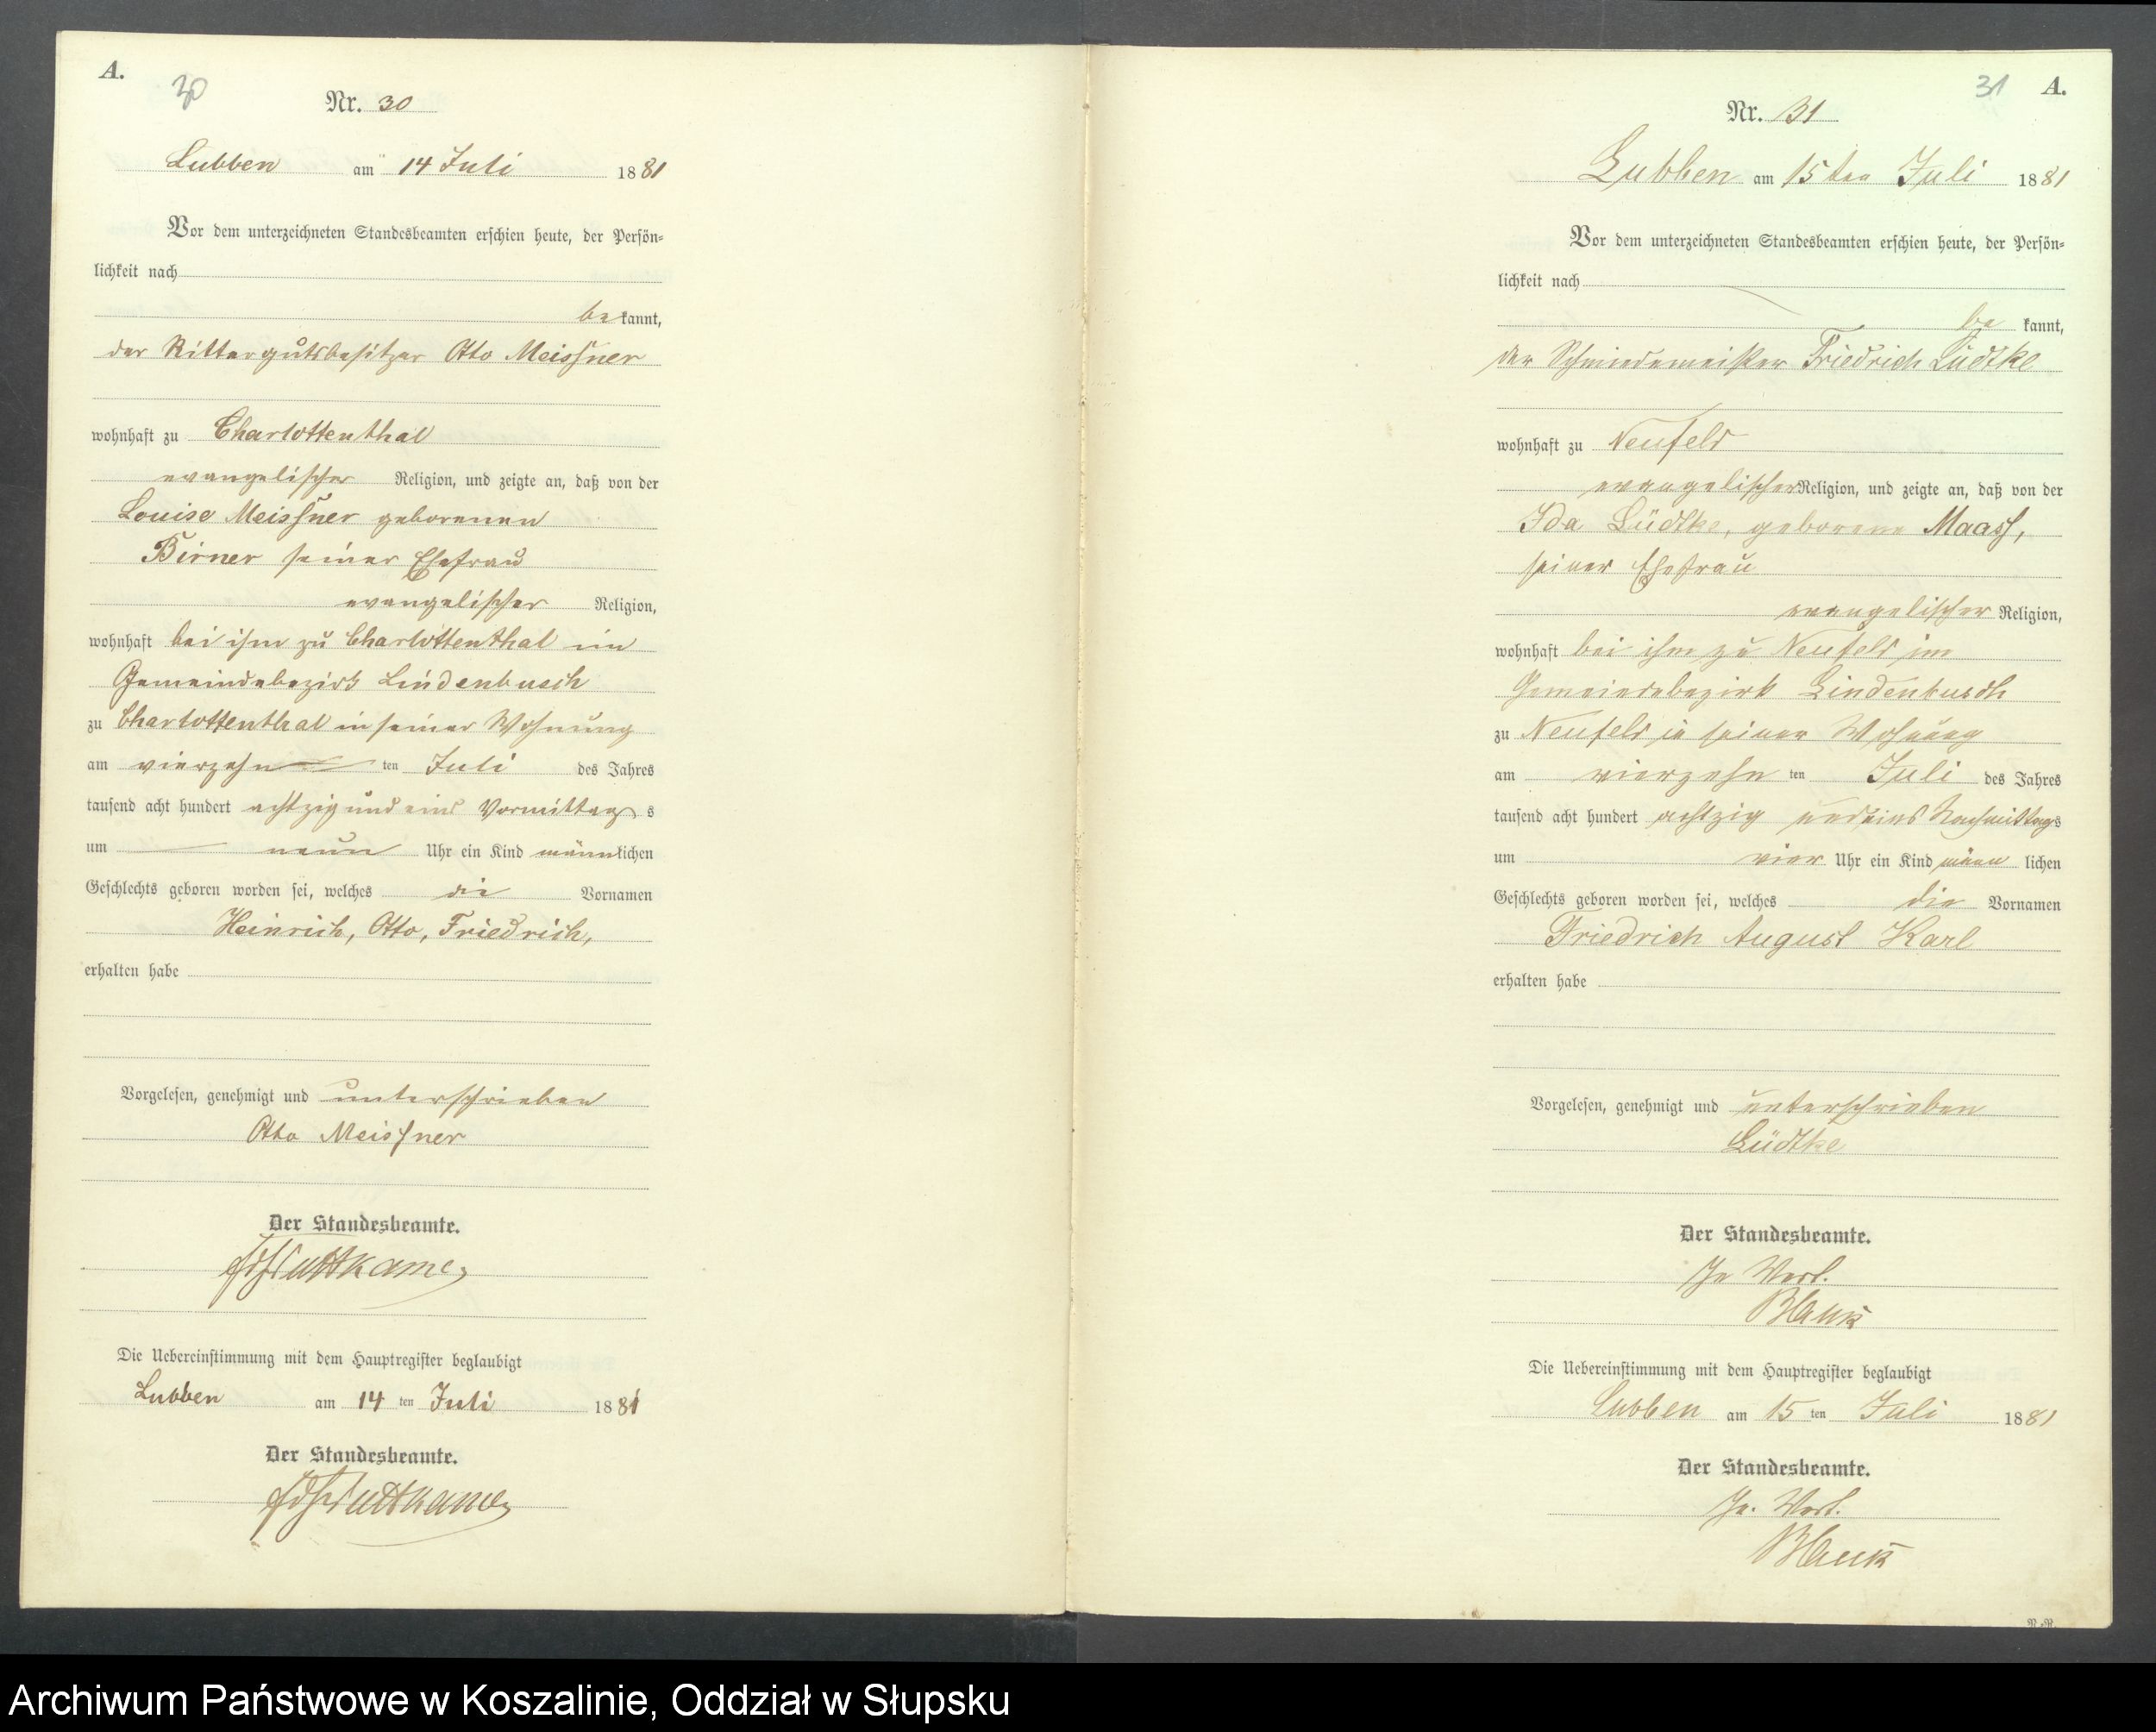 A.
30
Nr. 30
Lubben am 14 Juli 1881
Vor dem unterzeichneten Standesbeamten erschien heute, der Persön-
lichkeit nach
bekannt,
der Rittergutsbesitzer Otto Meissner
wohnhaft zu Charlottenthal
evangelischer Religion, und zeigte an, daß von der
Louise Meissner geborenen
Birner seiner Ehefrau
evangelischer Religion,
wohnhaft bei ihm zu Charlottenthal im
Gemeindebezirk Lindenbusch
zu Charlottenthal in seiner Wohnung
am vierzehn ten Juli des Jahres
tausend acht hundert achtzig und eins Vormittags
um neun Uhr ein Kind männlichen
Geschlechts geboren worden sei, welches die Vornamen
Heinrich, Otto, Friedrich,
erhalten habe
Vorgelesen, genehmigt und unterschrieben
Otto Meissner
Der Standesbeamte.
Puttkamer
Die Uebereinstimmung mit dem Hauptregister beglaubigt
Lubben am 14 ten Juli 1881
Der Standesbeamte.
Puttkamer
31 A.
Nr. 31
Lubben am 15ten Juli 1881
Vor dem unterzeichneten Standesbeamten erschien heute, der Persön-
lichkeit nach
be kannt,
der Schmiedemeister Friedrich Lüdtke
wohnhaft zu Neufeld
evangelischer Religion, und zeigte an, daß von der
Ida Lüdtke, geborene Maass,
seiner Ehefrau
evangelischer Religion,
wohnhaft bei ihm zu Neufeld im
Gemeindebezirk Lindenbusch
zu Neufeld in seiner Wohnung
am vierzehn ten Juli des Jahres
tausend acht hundert achtzig und eins Nachmittags
um vier Uhr ein Kind männ lichen
Geschlechts geboren worden sei, welches die Vornamen
Friedrich August Karl
erhalten habe
Vorgelesen, genehmigt und unterschrieben
Lüdtke
Der Standesbeamte.
In Vert.
Blank
Die Uebereinstimmung mit dem Hauptregister beglaubigt
Lubben am 15 ten Juli 1881
Der Standesbeamte.
In. Vert.
Blank
Archiwum Państwowe w Koszalinie, Oddział w Słupsku